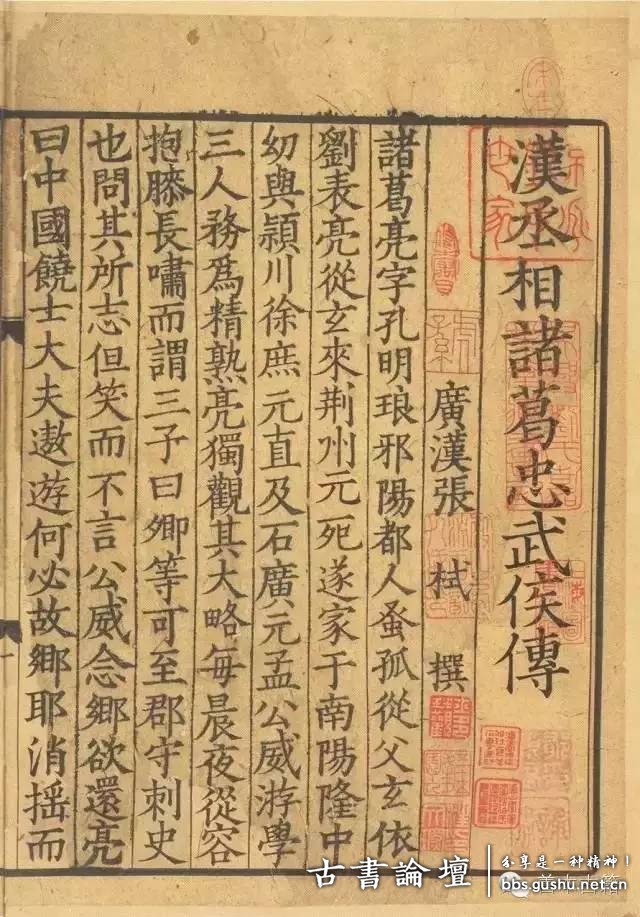 漢丞相諸葛忠武侯傳
廣漢張 栻 撰
諸葛亮字孔明琅邪陽都人蚤孤從父玄依
劉表亮從玄來荆州元死遂家于南陽隆中
幼與潁川徐庶元直及石廣元孟公威游學
三人務爲精熟亮獨觀其大略每晨夜從容
抱膝長嘯而謂三子曰卿等可至郡守刺史
也問其所志但笑而不言公威念鄉欲還亮
曰中國饒士大夫遨遊何必故鄉耶消揺而
古書論壇
分享是一种精神!
bbs.gushu.net.cn
善本古籍